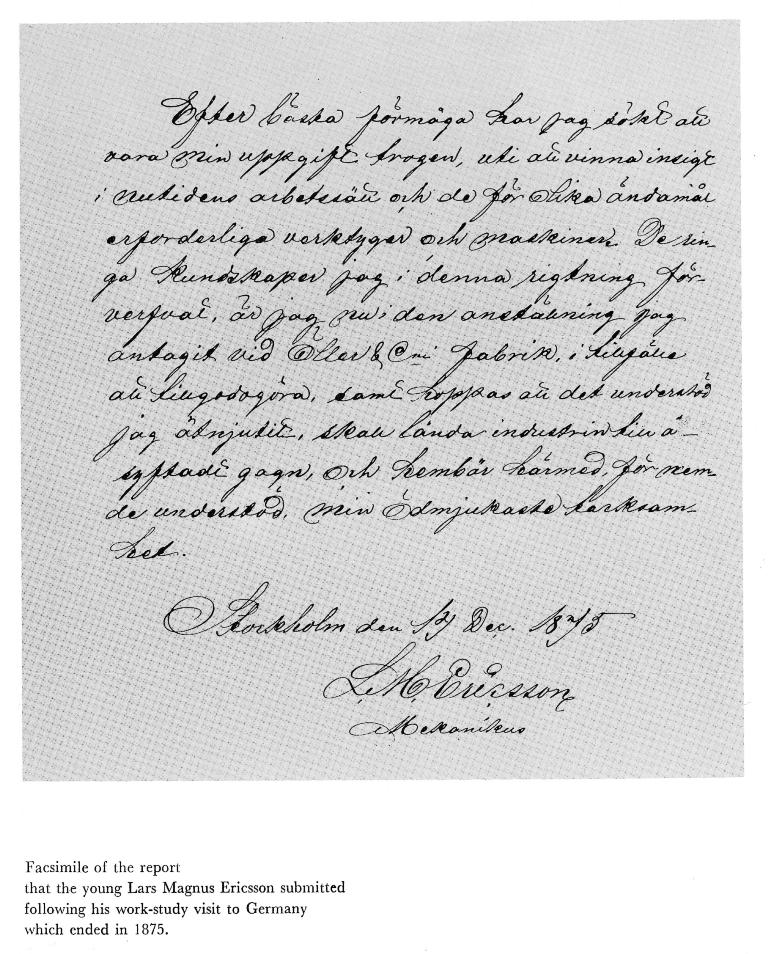 Efter bästa förmåga har jag sökt att
vara min uppgift trogen, uti att vinna insigt
i nutidens arbetssätt och de för olika ändamål
erforderliga verktyger och maskiner. De rin-
ga kunskaper jag i denna rigtning för-
verfvat, är jag nu i den anställning jag
antagit vid Öller & Cni fabrik, i tillfälle
att tillgodogöra, samt hoppas att det understöd
jag åtnjutit, skall lända industrin till å-
syftadt gagn, och hembär härmed, för nem-
de understöd, min ödmjukaste tacksam-
het.
Stockholm den Dec. 1875
L.M. Ericsson
Mekanikus
Facsimile of the report
that the young Lars Magnus Ericsson submitted
following his work-study visit to Germany
which ended in 1875.